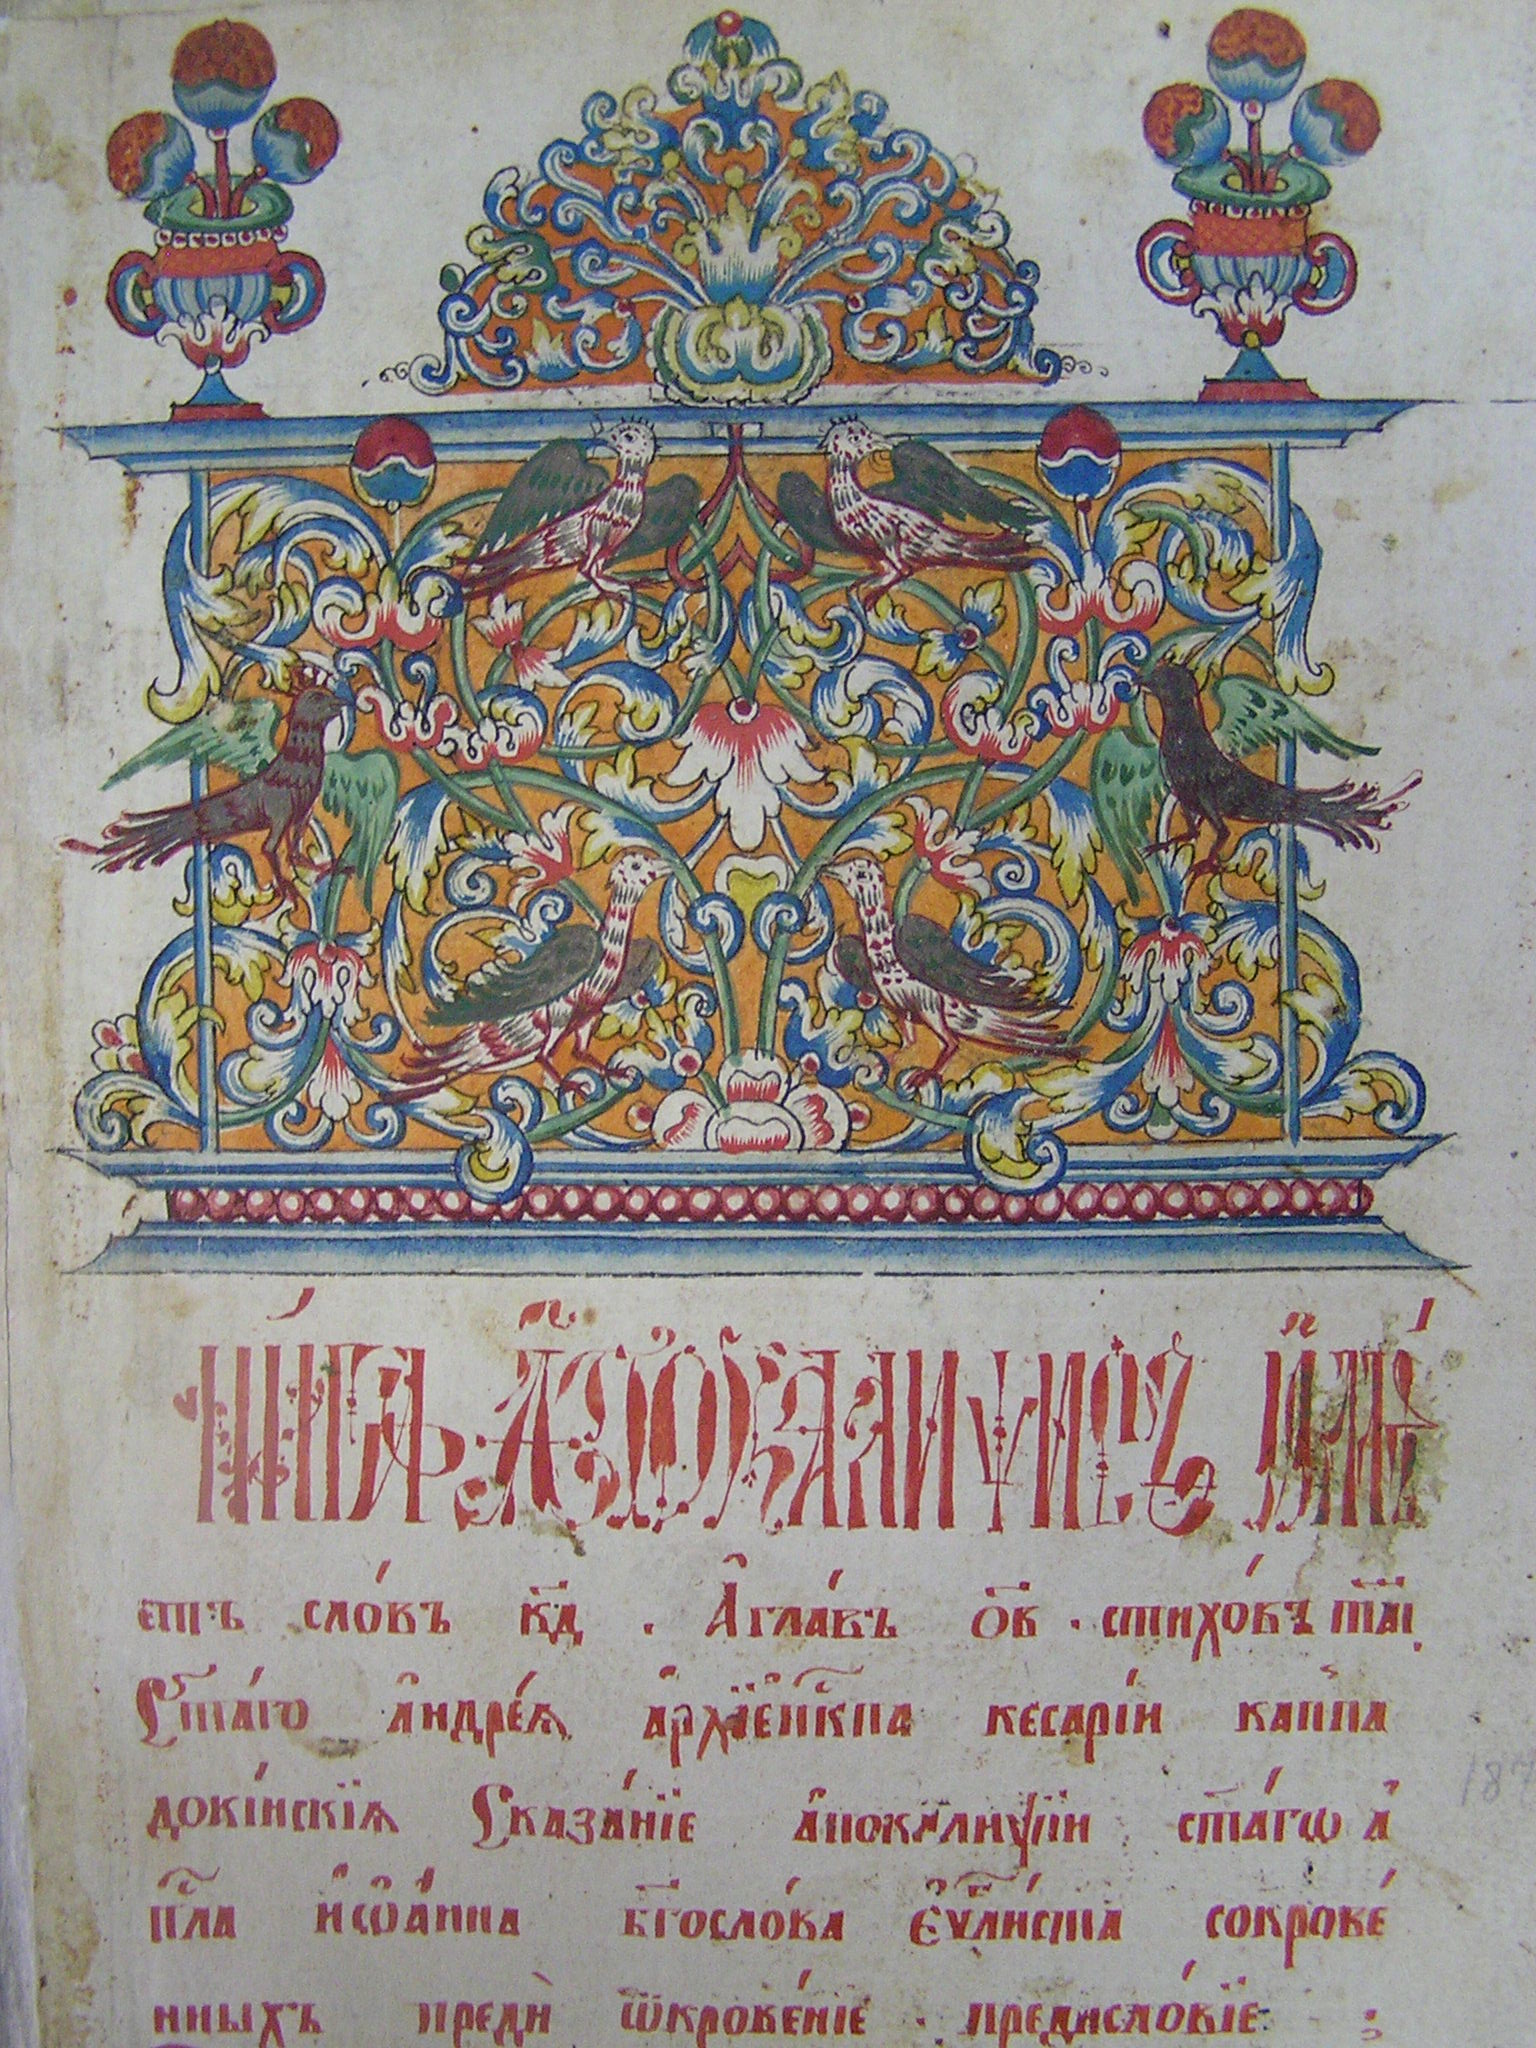 Кни́га а҆пока́лиѱисъ и҆мѣ́
етъ сло́въ к҃д . А҆ гла́въ о҃в . стихо́въ
Ст҃а́гѡ а҆ндре́ѧ а҆рхїепⷭ҇кпа кесарі́и каппа
докі́нскїѧ Сказа́нїе а҆покалиѱїи ст҃а́гѡ а҆
пⷭ҇ла и҆ѡа́нна бг҃осло́ва є҆ѵⷢ҇ли́ста сокрове́
нныхъ пред̾и ѿкрове́нїе . предисло́вїе :
187